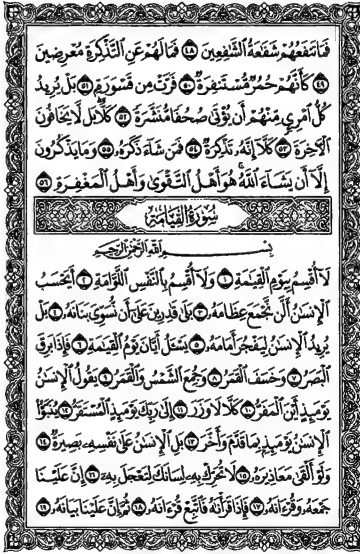 فَمَا تَنفَعُهُمْ شَفَاعَةُ الشَّافِعِينَ ٤٨ فَمَا لَهُمْ عَنِ التَّذْكِرَةِ مُعْرِضِينَ
٤٩ كَأَنَّهُمْ حُمُرٌ مُّسْتَنفِرَةٌ ٥٠ فَرَّتْ مِن قَسْوَرَةٍ ٥١ بَلْ يُرِيدُ
كُلُّ امْرِئٍ مِّنْهُمْ أَن يُؤْتَىٰ صُحُفًا مُّنَشَّرَةً ٥٢ كَلَّا بَل لَّا يَخَافُونَ
الْآخِرَةَ ٥٣ كَلَّا إِنَّهُ تَذْكِرَةٌ ٥٤ فَمَن شَاءَ ذَكَرَهُ ٥٥ وَمَا يَذْكُرُونَ
إِلَّا أَن يَشَاءَ اللَّهُ هُوَ أَهْلُ التَّقْوَىٰ وَأَهْلُ الْمَغْفِرَةِ ٥٦
سُورَةُ الْقِيَامَةِ
بِسْمِ اللَّهِ الرَّحْمَٰنِ الرَّحِيمِ
لَا أُقْسِمُ بِيَوْمِ الْقِيَٰمَةِ ١ وَلَا أُقْسِمُ بِالنَّفْسِ اللَّوَّامَةِ ٢ أَيَحْسَبُ
الْإِنسَٰنُ أَلَّن نَّجْمَعَ عِظَامَهُ ٣ بَلَىٰ قَٰدِرِينَ عَلَىٰ أَن نُّسَوِّيَ بَنَانَهُ ٤ بَلْ
يُرِيدُ الْإِنسَٰنُ لِيَفْجُرَ أَمَامَهُ ٥ يَسْـَٔلُ أَيَّانَ يَوْمُ الْقِيَٰمَةِ ٦ فَإِذَا بَرِقَ
الْبَصَرُ ٧ وَخَسَفَ الْقَمَرُ ٨ وَجُمِعَ الشَّمْسُ وَالْقَمَرُ ٩ يَقُولُ الْإِنسَٰنُ
يَوْمَئِذٍ أَيْنَ الْمَفَرُّ ١٠ كَلَّا لَا وَزَرَ ١١ إِلَىٰ رَبِّكَ يَوْمَئِذٍ الْمُسْتَقَرُّ ١٢ يُنَبَّؤُا
الْإِنسَٰنُ يَوْمَئِذٍ بِمَا قَدَّمَ وَأَخَّرَ ١٣ بَلِ الْإِنسَٰنُ عَلَىٰ نَفْسِهِ بَصِيرَةٌ ١٤
وَلَوْ أَلْقَىٰ مَعَاذِيرَهُ ١٥ لَا تُحَرِّكْ بِهِ لِسَانَكَ لِتَعْجَلَ بِهِ ١٦ إِنَّ عَلَيْنَا
جَمْعَهُ وَقُرْءَانَهُ ١٧ فَإِذَا قَرَأْنَٰهُ فَاتَّبِعْ قُرْءَانَهُ ١٨ ثُمَّ إِنَّ عَلَيْنَا بَيَانَهُ ١٩